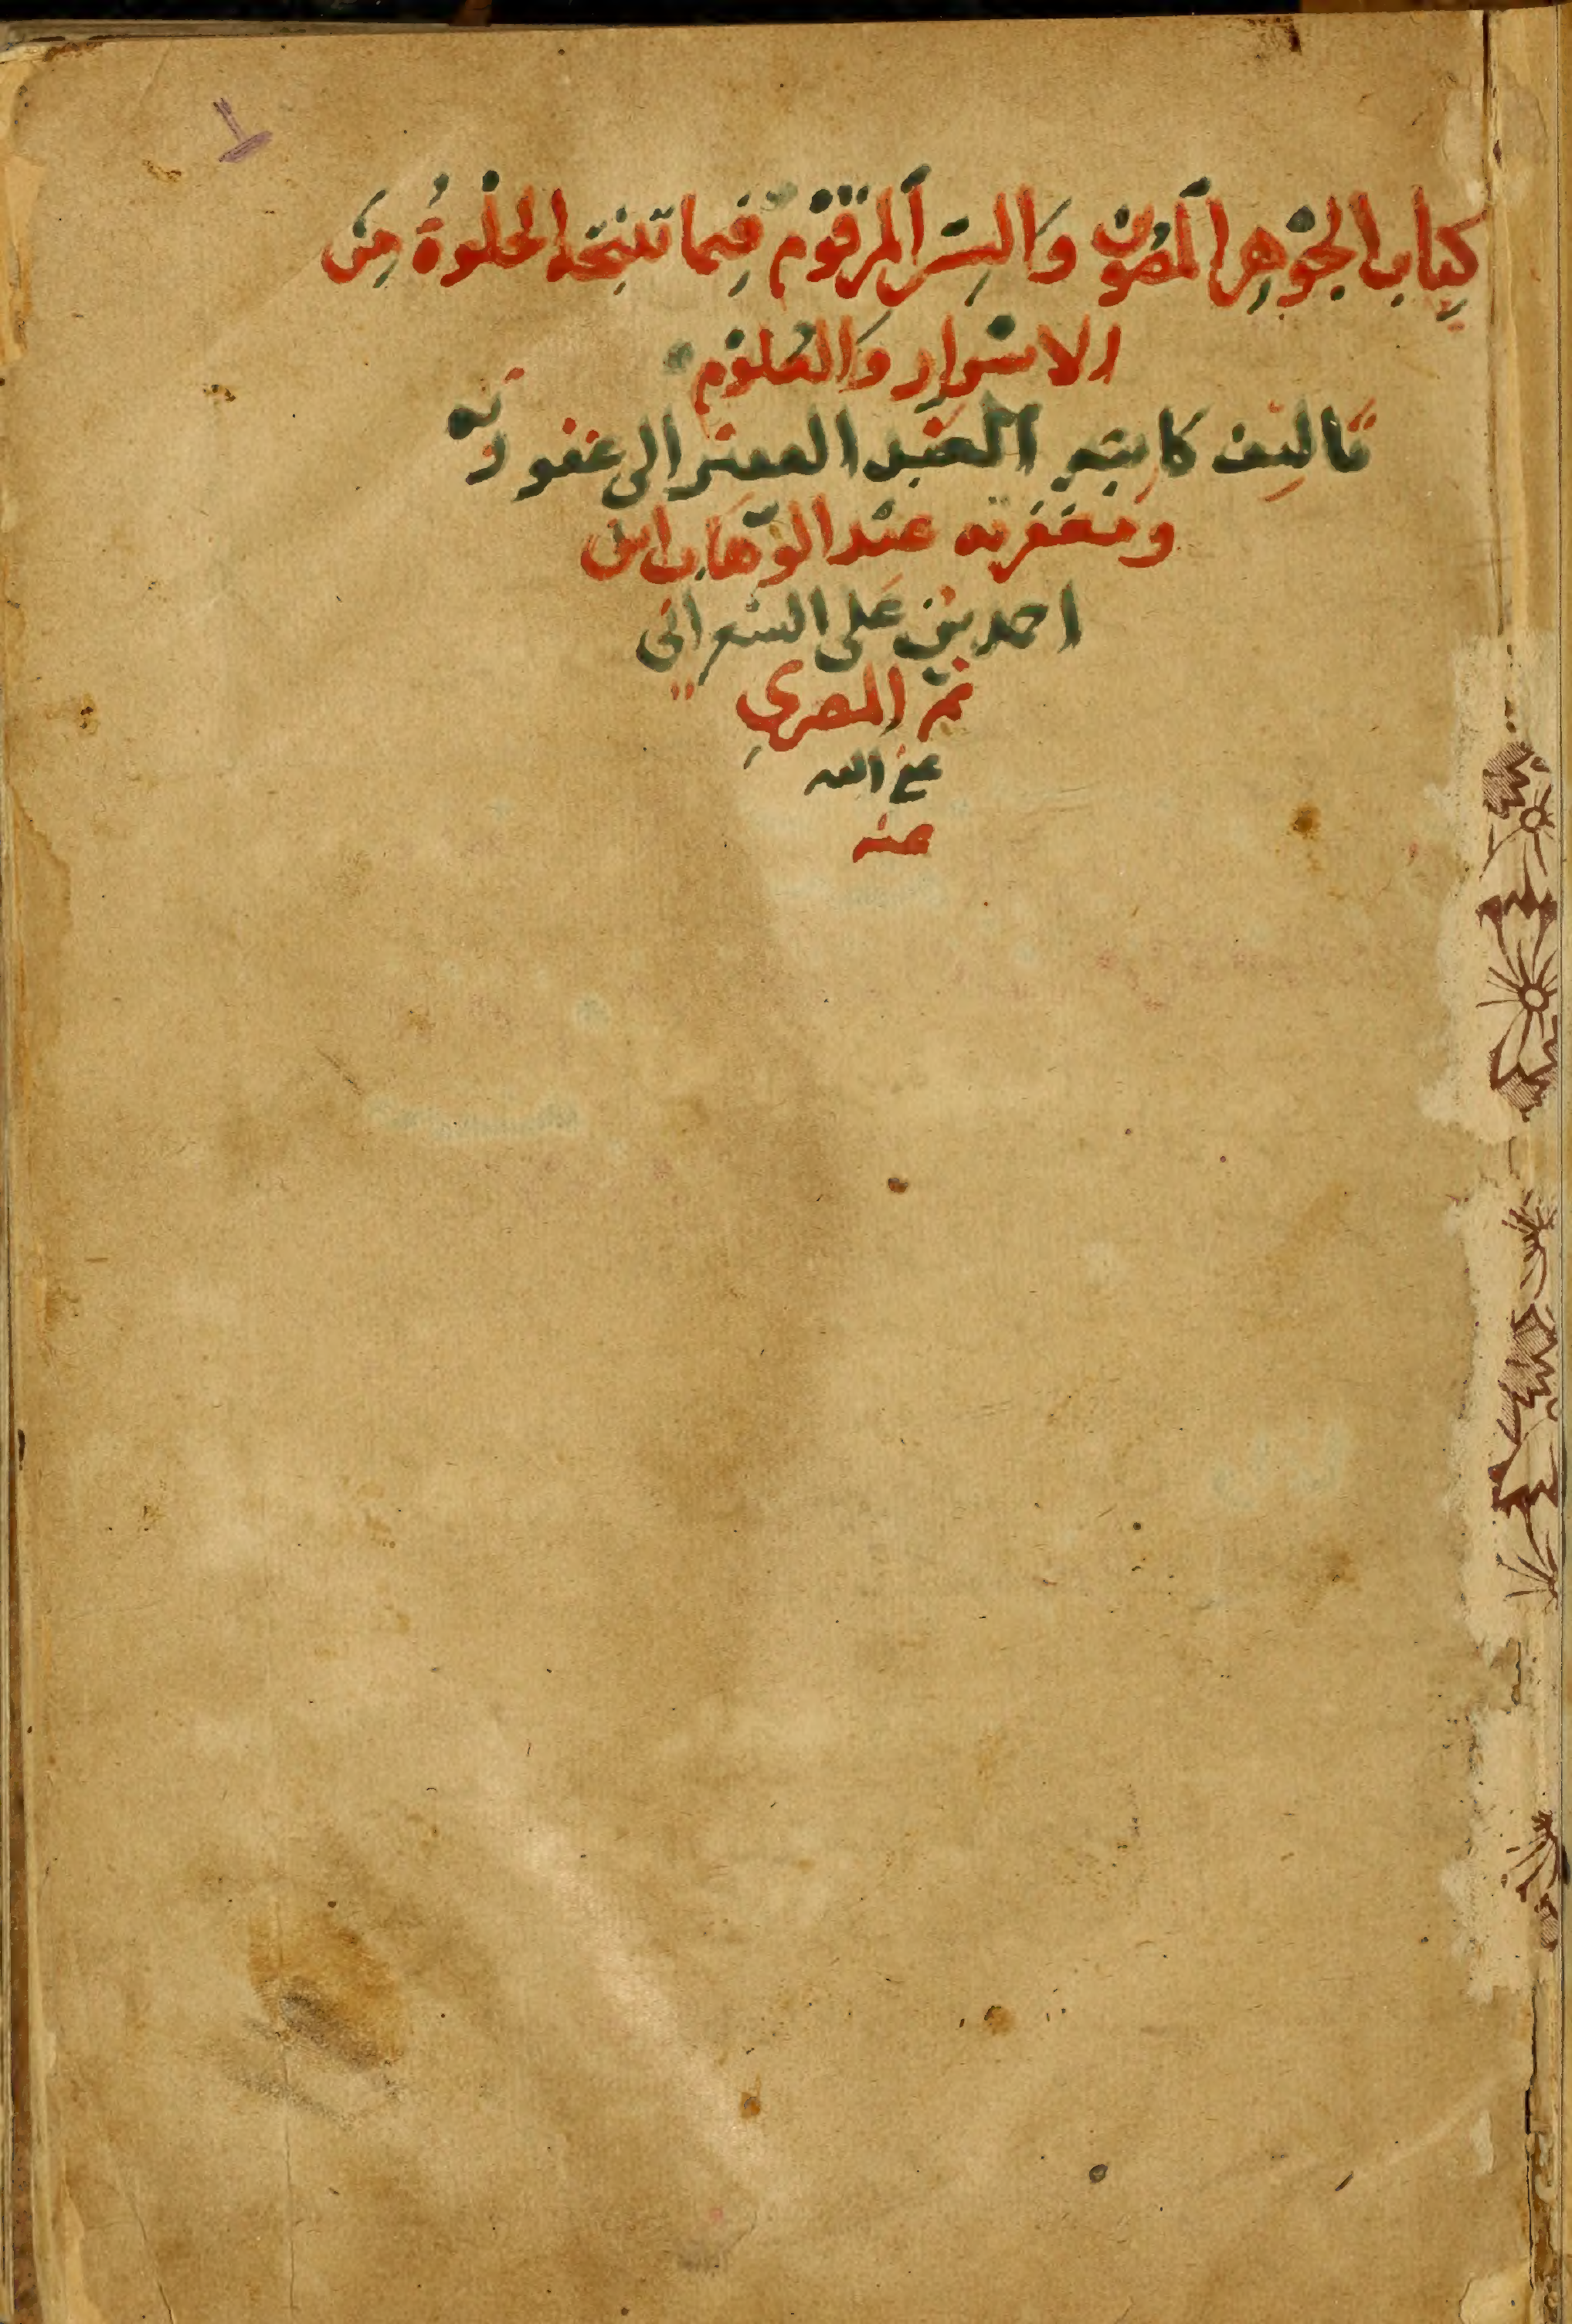 كِتَاب الجَوْهَر المَصُون وَالسِّر المَرْقُوْم فِيما تنتِجُه الخَلْوَةُ مِنَ
الاسْرَار وَالعُلُوْم
تَاليف كاتبه العَبْد المفتقر الى عَفو ربّه
ومَغفرته عَبْد الوَهّاب ابن
احمد بْن عَلى الشعراني
ثمّ المصري
عفى الله
عنه